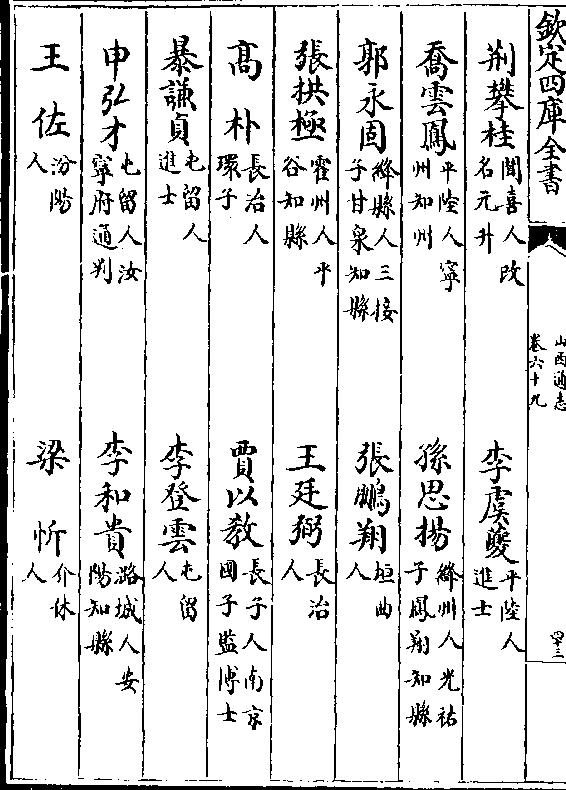 欽定四庫全書
山西通志
卷六十九
四十三
荆攀桂 聞喜人改名元升 李虞夔 平陸人進士
喬雲鳳 平陸人寧州知州 孫思揚 絳州人光祐子鳳翔知縣
郭永固 絳縣人三接子甘泉知縣 張鵬翔 垣曲人
張拱極 霍州人平谷知縣 王廷弼 長治人
高朴 長治人環子 賈以教 長子人南京國子監博士
暴謙貞 屯留人進士 李登雲 屯留人
申弘才 屯留人汝寧府通判 李和貴 潞城人安陽知縣
王佐 汾陽人 梁忻 介休人